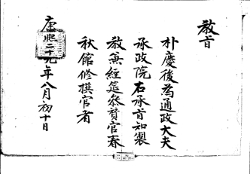 教旨
朴慶後為通政大夫
承政院右承旨知製
教兼經筵參贊官春
秋館修撰官者
康熙二十九年八月初十日